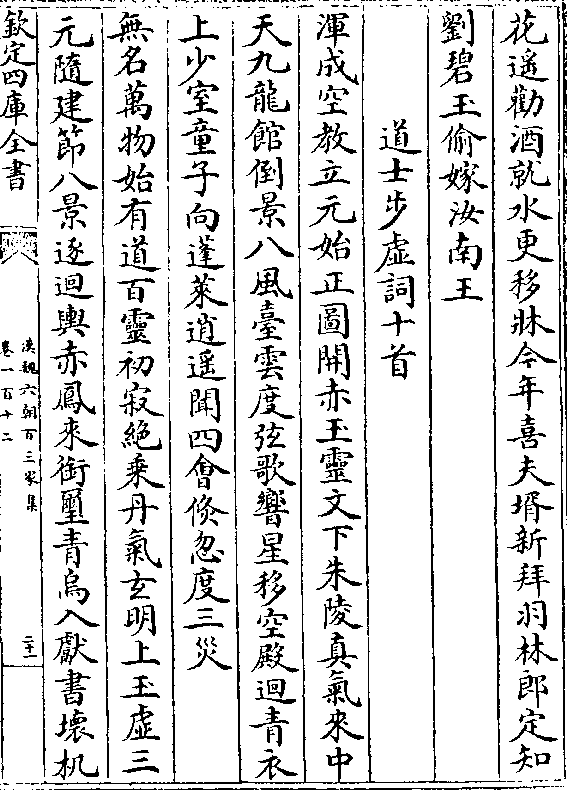 花遥勸酒就水更移牀今年喜夫壻新拜羽林郎定知
劉碧玉偷嫁汝南王
道士步虚詞十首
渾成空教立元始正圖開赤玉靈文下朱陵真氣來中
天九龍館倒景八風臺雲度弦歌響星移空殿迴青衣
上少室童子向蓬萊逍遥聞四會倏忽度三災
無名萬物始有道百靈初寂絶乗丹氣玄明上玉虚三
元隨建節八景逐迴輿赤鳳來銜璽青鳥入獻書壊机
欽定四庫全書
漢魏六朝百三家集
卷一百十二
二十一